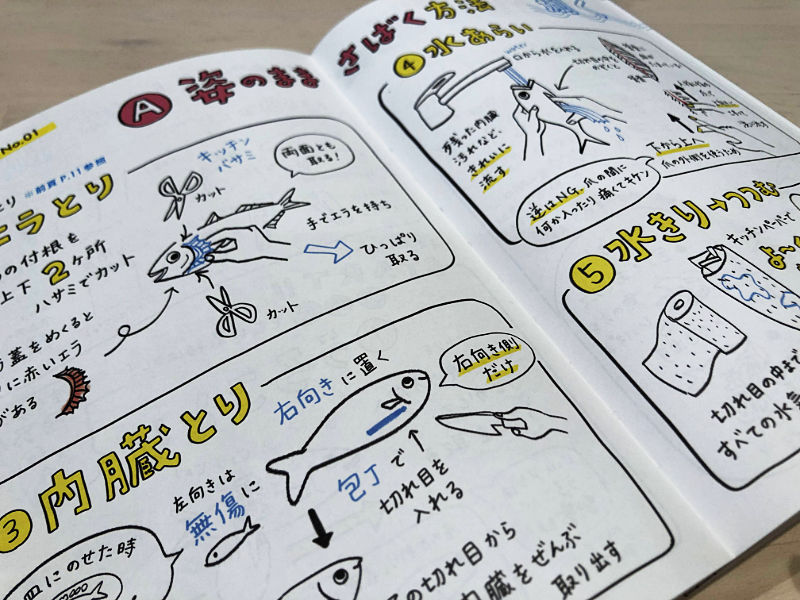 No.01
A 姿のまま さばく方法
※前頁 P.11参照
エラとり
の付根を
上下 2ヶ所
ハサミでカット
キッチン
バサミ
カット
両面とも
取る!
手でエラを持ち
ひっぱり
取る
カット
蓋をめくると
に赤いエラ
がある
3 内臓とり
右向きに置く
右向き側
だけ
左向きは
無傷に
包丁で
切れ目を
入れる
皿にのせた時
の切れ目から
内臓をぜんぶ
取り出す
4 水あらい
water
残った内臓
汚れなど、
きれいに
流す
下から上へ
爪の外側を使うため
逆はNG、爪の間に
何か入ったり 痛くてキケン
5 水きり→つつむ
キッチンペーパーで
よ〜
切れ目の中まで
すべての水気